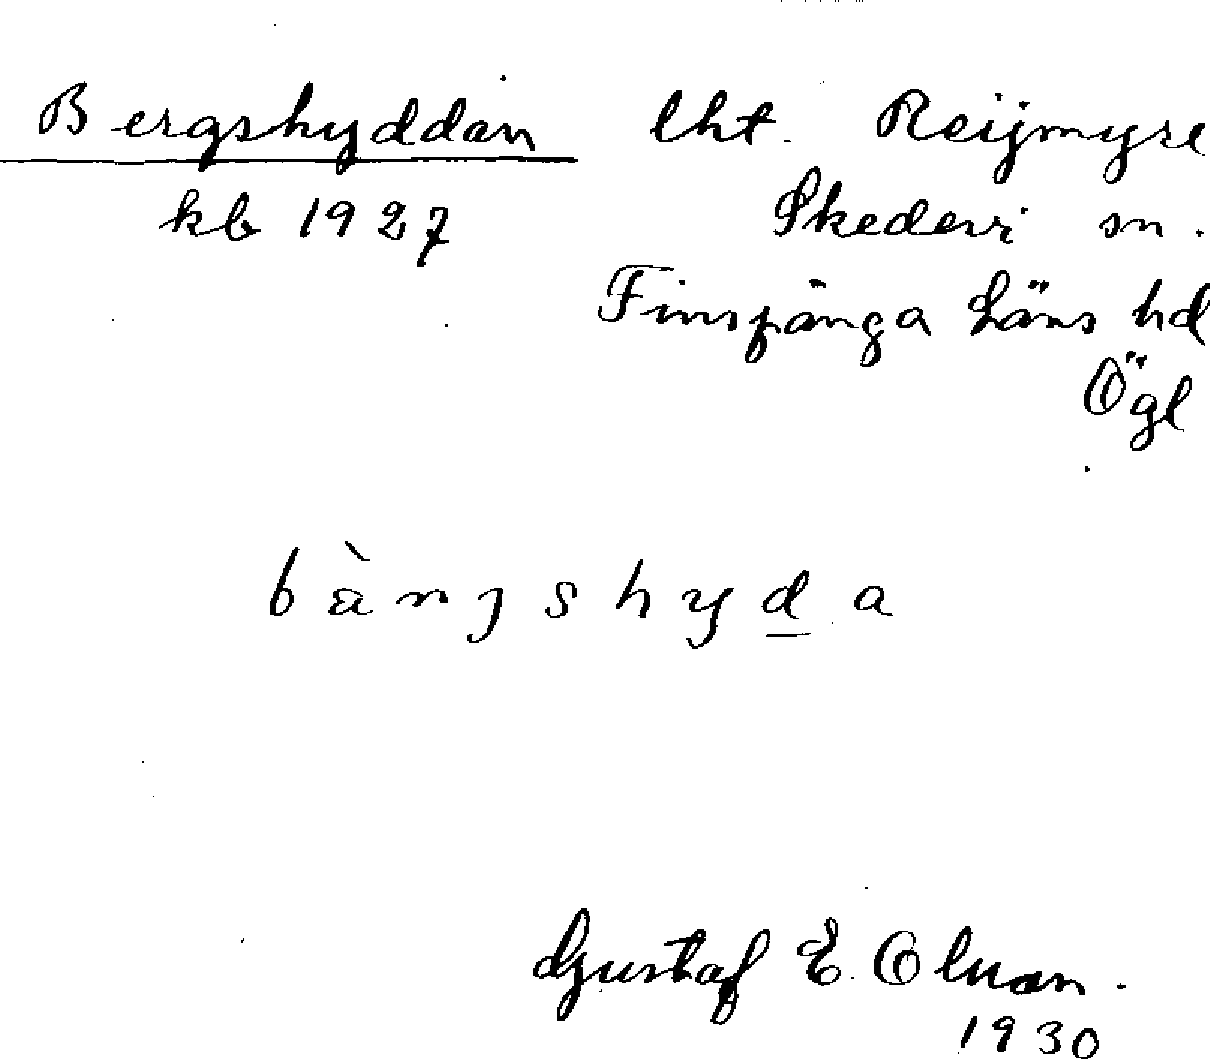 Bergshyddan lht. Reijmyre
kb 1927 Skedevi sn.
Finspånga Läns hd
Ögl
bàrjshyda
Gustaf E. Olson.
1930